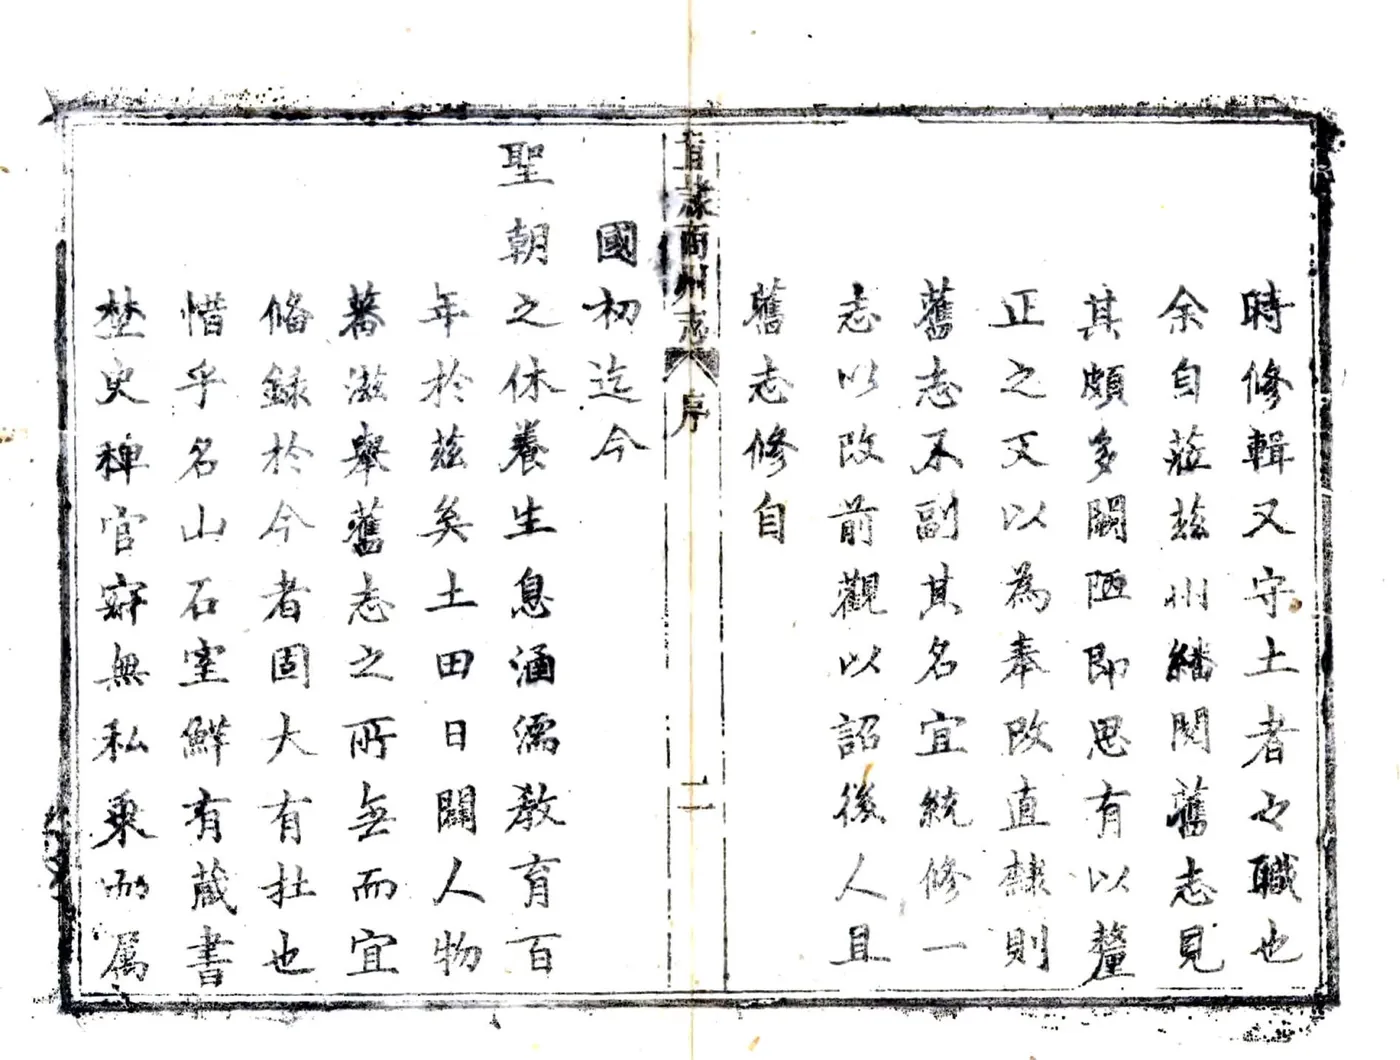 時修輯又守土者之職也
余自蒞茲州繙閱舊志見
其頗多闕陋即思有以釐
正之又以為奉改直隸則
舊志不副其名宜統修一
志以改前觀以詔後人且
舊志修自
直隸商州志 序 二
國初迄今
聖朝之休養生息涵濡教育百
年於茲矣土田日闢人物
蕃滋舉舊志之所無而宜
偹録於今者固大有在也
惜乎名山石室鮮有蔵書
埜史稗官
無私乘
属